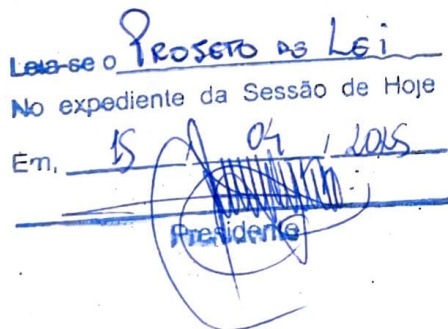 Leia-se o PROJETO DE LEi
No expediente da Sessão de Hoje
Em, 15 / 04 / 2015
Presidente